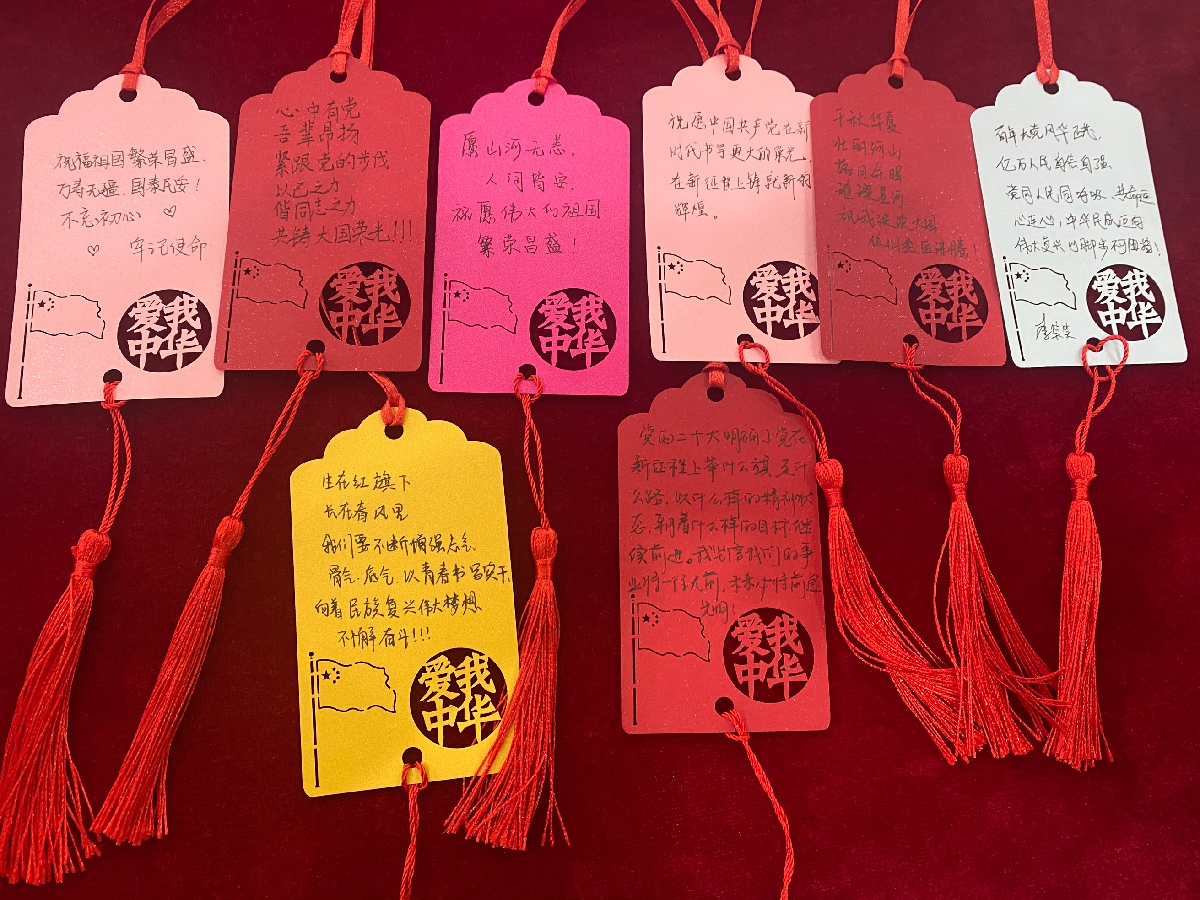 祝福祖国繁荣昌盛,
万寿无疆、国泰民安!
不忘初心
牢记使命
爱我
中华
心中有党
吾辈昂扬
紧跟党的步伐
以己之力
偕同志之力
共铸大国荣光!!!
爱我
中华
愿山河无恙,
人间皆安,
祝愿伟大的祖国
繁荣昌盛!
爱我
中华
祝愿中国共产党在新
时代书写更大的荣光,
在新征程上铸就新的
辉煌。
爱我
中华
千秋华夏
壮丽河山
璀璨星河
祝我泱泱大国
爱我
中华
百年大党风华正茂,
亿万人民自信自强
党同人民同呼吸、共命运
心连心,中华民族迈向
伟大复兴的脚步不可阻挡!
爱我
中华
生在红旗下
长在春风里
我们要不断增强志气、
骨气、底气,以青春书写实干,
向着民族复兴伟大梦想
不懈奋斗!!!
爱我
中华
党的二十大明确了党在
新征程上举什么旗、走什
么路、以什么样的精神状
态、朝着什么样的目标继
续前进。我坚信我们的事
业将一往无前,未来必将前途
光明!
爱我
中华